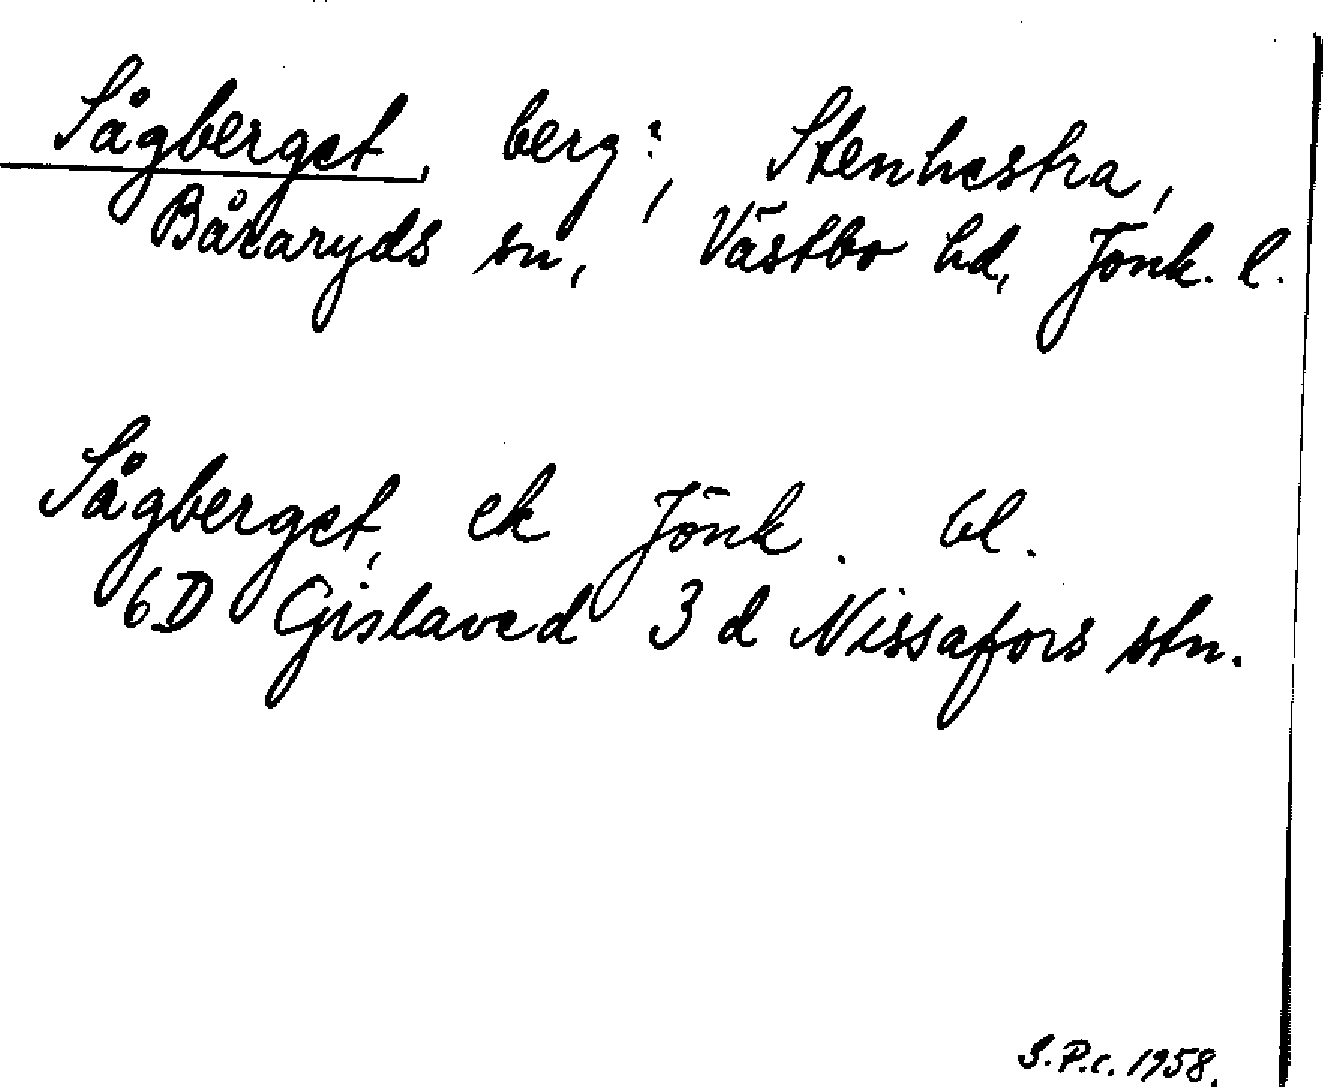 Sågberget, berg:, Stenhestra,
Båraryds sn, Västbo hd, Jönk. l.
Sågberget, ek Jönk. bl.
6D Gislaved 3 d Nissafors stn.
S.P.c. 1958.